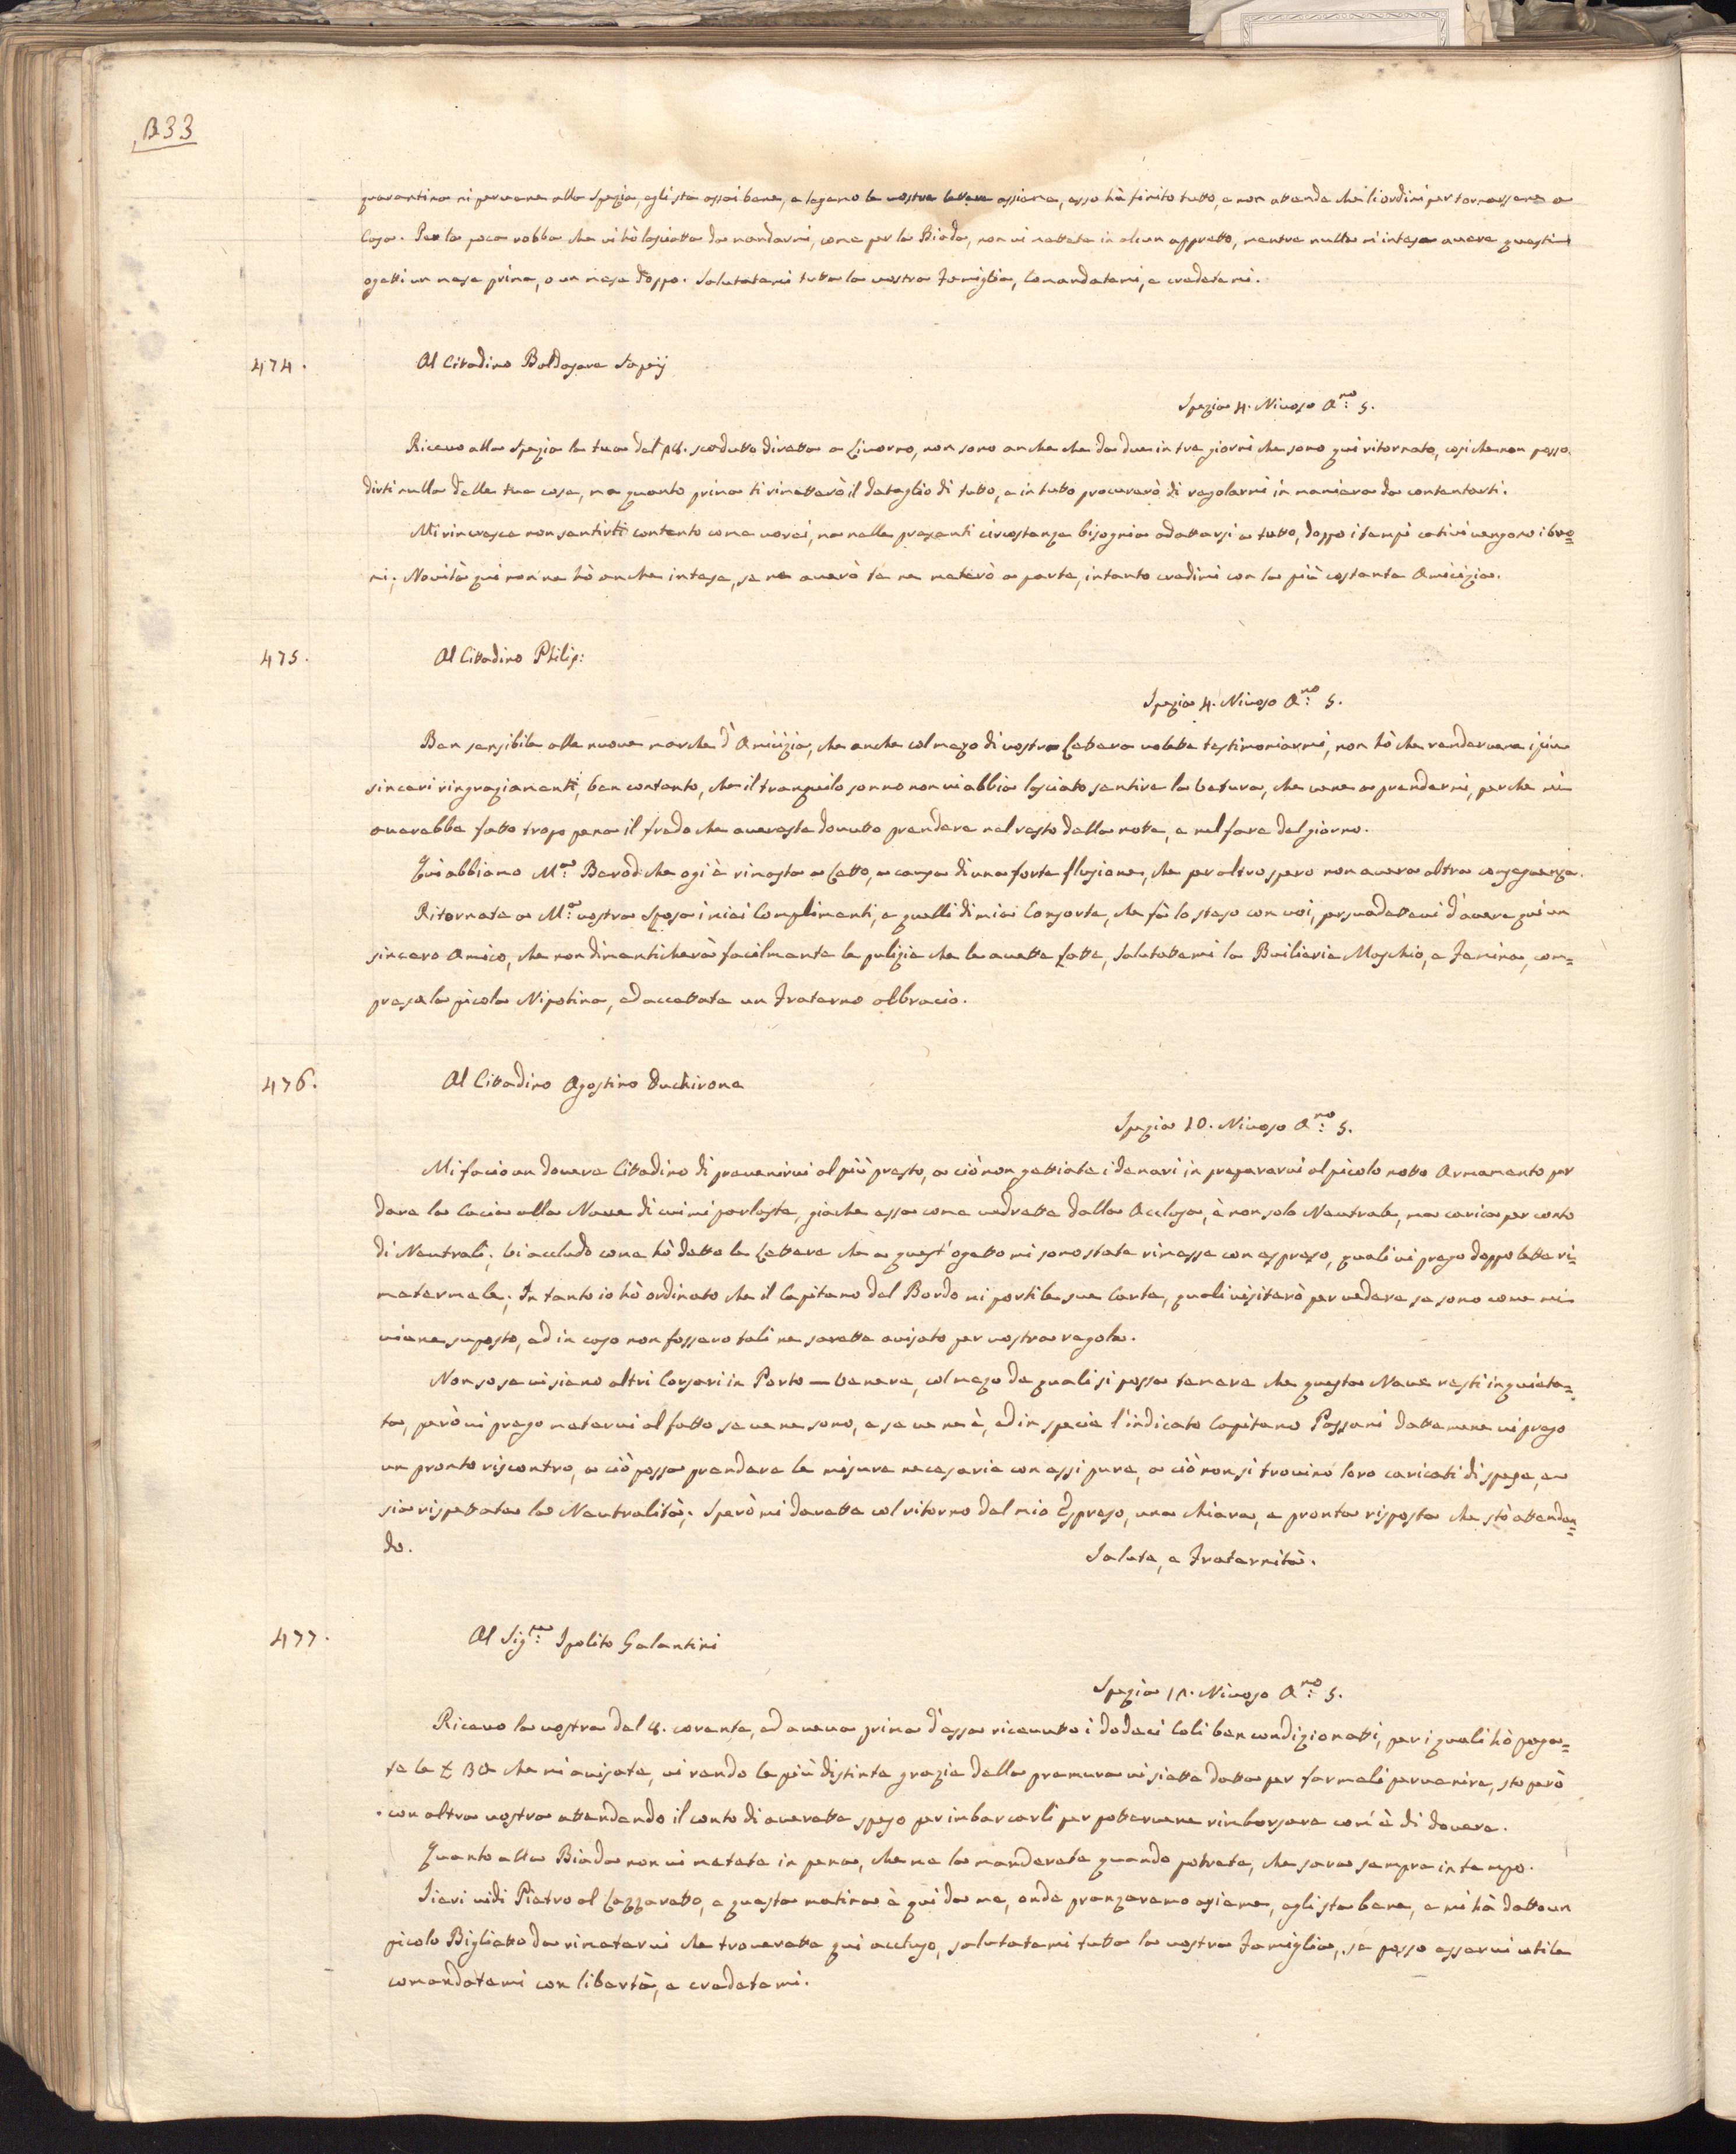 133
quarantina mi pervenne alla Spezia, egli sta assai bene, e legemo le vostre lettere assieme, esso hà finito tutto, e non attende che li ordini per tornarsene a
Casa. Per la poca robba che vi hò lasciatta da mandarmi, come per la Biada, non vi mettete in alcun appretto, mentre nulla m'intesa avere questi
ogetti un mese prima, o un mese doppo. Salutatemi tutta la vostra Famiglia, Comandatemi, e credetemi.
474. Al Cittadino Baldasare Sapeij
Spezia 4. Nivoso A.no 5.
Ricevo alla Spezia la tua del 18. scadutto diretta a Livorno, non sono anche che da due in tre giorni che sono qui ritornato, cosi che non posso
dirti nulla delle tue cose, ma quanto prima ti rimetterò il detaglio di tutto, e in tutto procurerò di regolarmi in maniera da contentarti.
Mi rincresce non sentirti contento come vorei, ma nelle presenti circostanze bisognia adattarsi a tutto, doppo i tempi cativi vengono i buo=
ni; Novità qui non ne hò anche intese, se ne averò te ne meterò a parte, intanto credimi con la più costante Amicizia.
475. Al Cittadino Philip:
Spezia 4. Nivoso A.no 5.
Ben sensibile alle nuove marche d'Amicizia, che anche col mezo di vostra Letera volette testimoniarmi, non hò che rendervene i più
sinceri ringraziamenti, ben contento, che il tranquilo sonno non vi abbia lasciato sentire la vetura, che vene a prendermi, perche mi
averebbe fatto tropo pena il fredo che avereste dovutto prendere nel resto della notte, e nel fare del giorno.
Qui abbiamo M.a Berod che ogi è rimasta a Letto, a causa di una forte flusione, che per altro spero non avera altra conseguenza.
Ritornate a M.a vostra Sposa i miei Complimenti, e quelli di mia Consorte, che fà lo steso con voi, persuadettevi d'avere qui un
sincero Amico, che non dimenticherà facilmente le pulizie che le avette fatte, Salutattemi la Builieria Maschio, e Femina, com=
presa la picola Nipotina, ed accettate un Fraterno abbracio.
476. Al Cittadino Agostino Duchirone
Spezia 10. Nivoso A.no 5.
Mi facio un dovere Cittadino di prevenirvi al più presto, a ciò non gettiate i denari in prepararvi al picolo notto Armamento per
dare la Cacia alla Nave di cui mi parlaste, giache essa come vedrette dalla Acclusa, è non solo Neutrale, ma carica per conto
di Neutrali; Vi accludo come hò detto le Lettere che a quest'ogetto mi sono state rimesse con espreso, quali vi prego doppo lette ri=
metermele; In tanto io hò ordinato che il Capitano del Bordo mi porti le sue Carte, quali visiterò per vedere se sono come mi
viene suposto, ed in caso non fossero tali ne sarette avisato per vostra regola.
Non so se vi siano altri Corsari in Porto-Venere, col mezo de quali si possa temere che questa Nave resti inquieta=
ta, però vi prego metervi al fatto se ve ne sono, e se ve ne è, ed in specie l'indicato Capitano Passani dattemene vi prego
un pronto riscontro, a ciò possa prendere le misure necesarie con essi pure, a ciò non si trovino loro caricati di spese, e
sia rispettata la Neutralità; Sperò mi darette col ritorno del mio Espreso, una chiara, e pronta risposta che stò attenden=
do.
Salute, e Fraternità.
477. Al Sig.re Ipolito Galantini
Spezia 11. Nivoso A.no 5.
Ricevo la vostra del 8. corente, ed aveva prima d'essa ricevutto i dodeci Coli ben condizionatti, per i quali hò paga=
te le £ 30 che mi avisate, vi rendo le più distinte grazie della premura vi siette datta per farmeli pervenire, sto però
con altra vostra attendendo il conto di averette speso per imbarcarli per pottervene rimborsare com'è di dovere.
Quanto alla Biada non vi metete in pena, che me la manderete quando potrete, che sara sempre in tempo.
Jieri vidi Pietro al Lazzaretto, e questa matina è qui da me, onde pranzaremo asieme, egli sta bene, e mi hà datto un
picolo Biglietto da rimetervi che troverette qui accluso, salutatemi tutta la vostra Famiglia, se posso esservi utile
comandatemi con libertà, e credetemi.